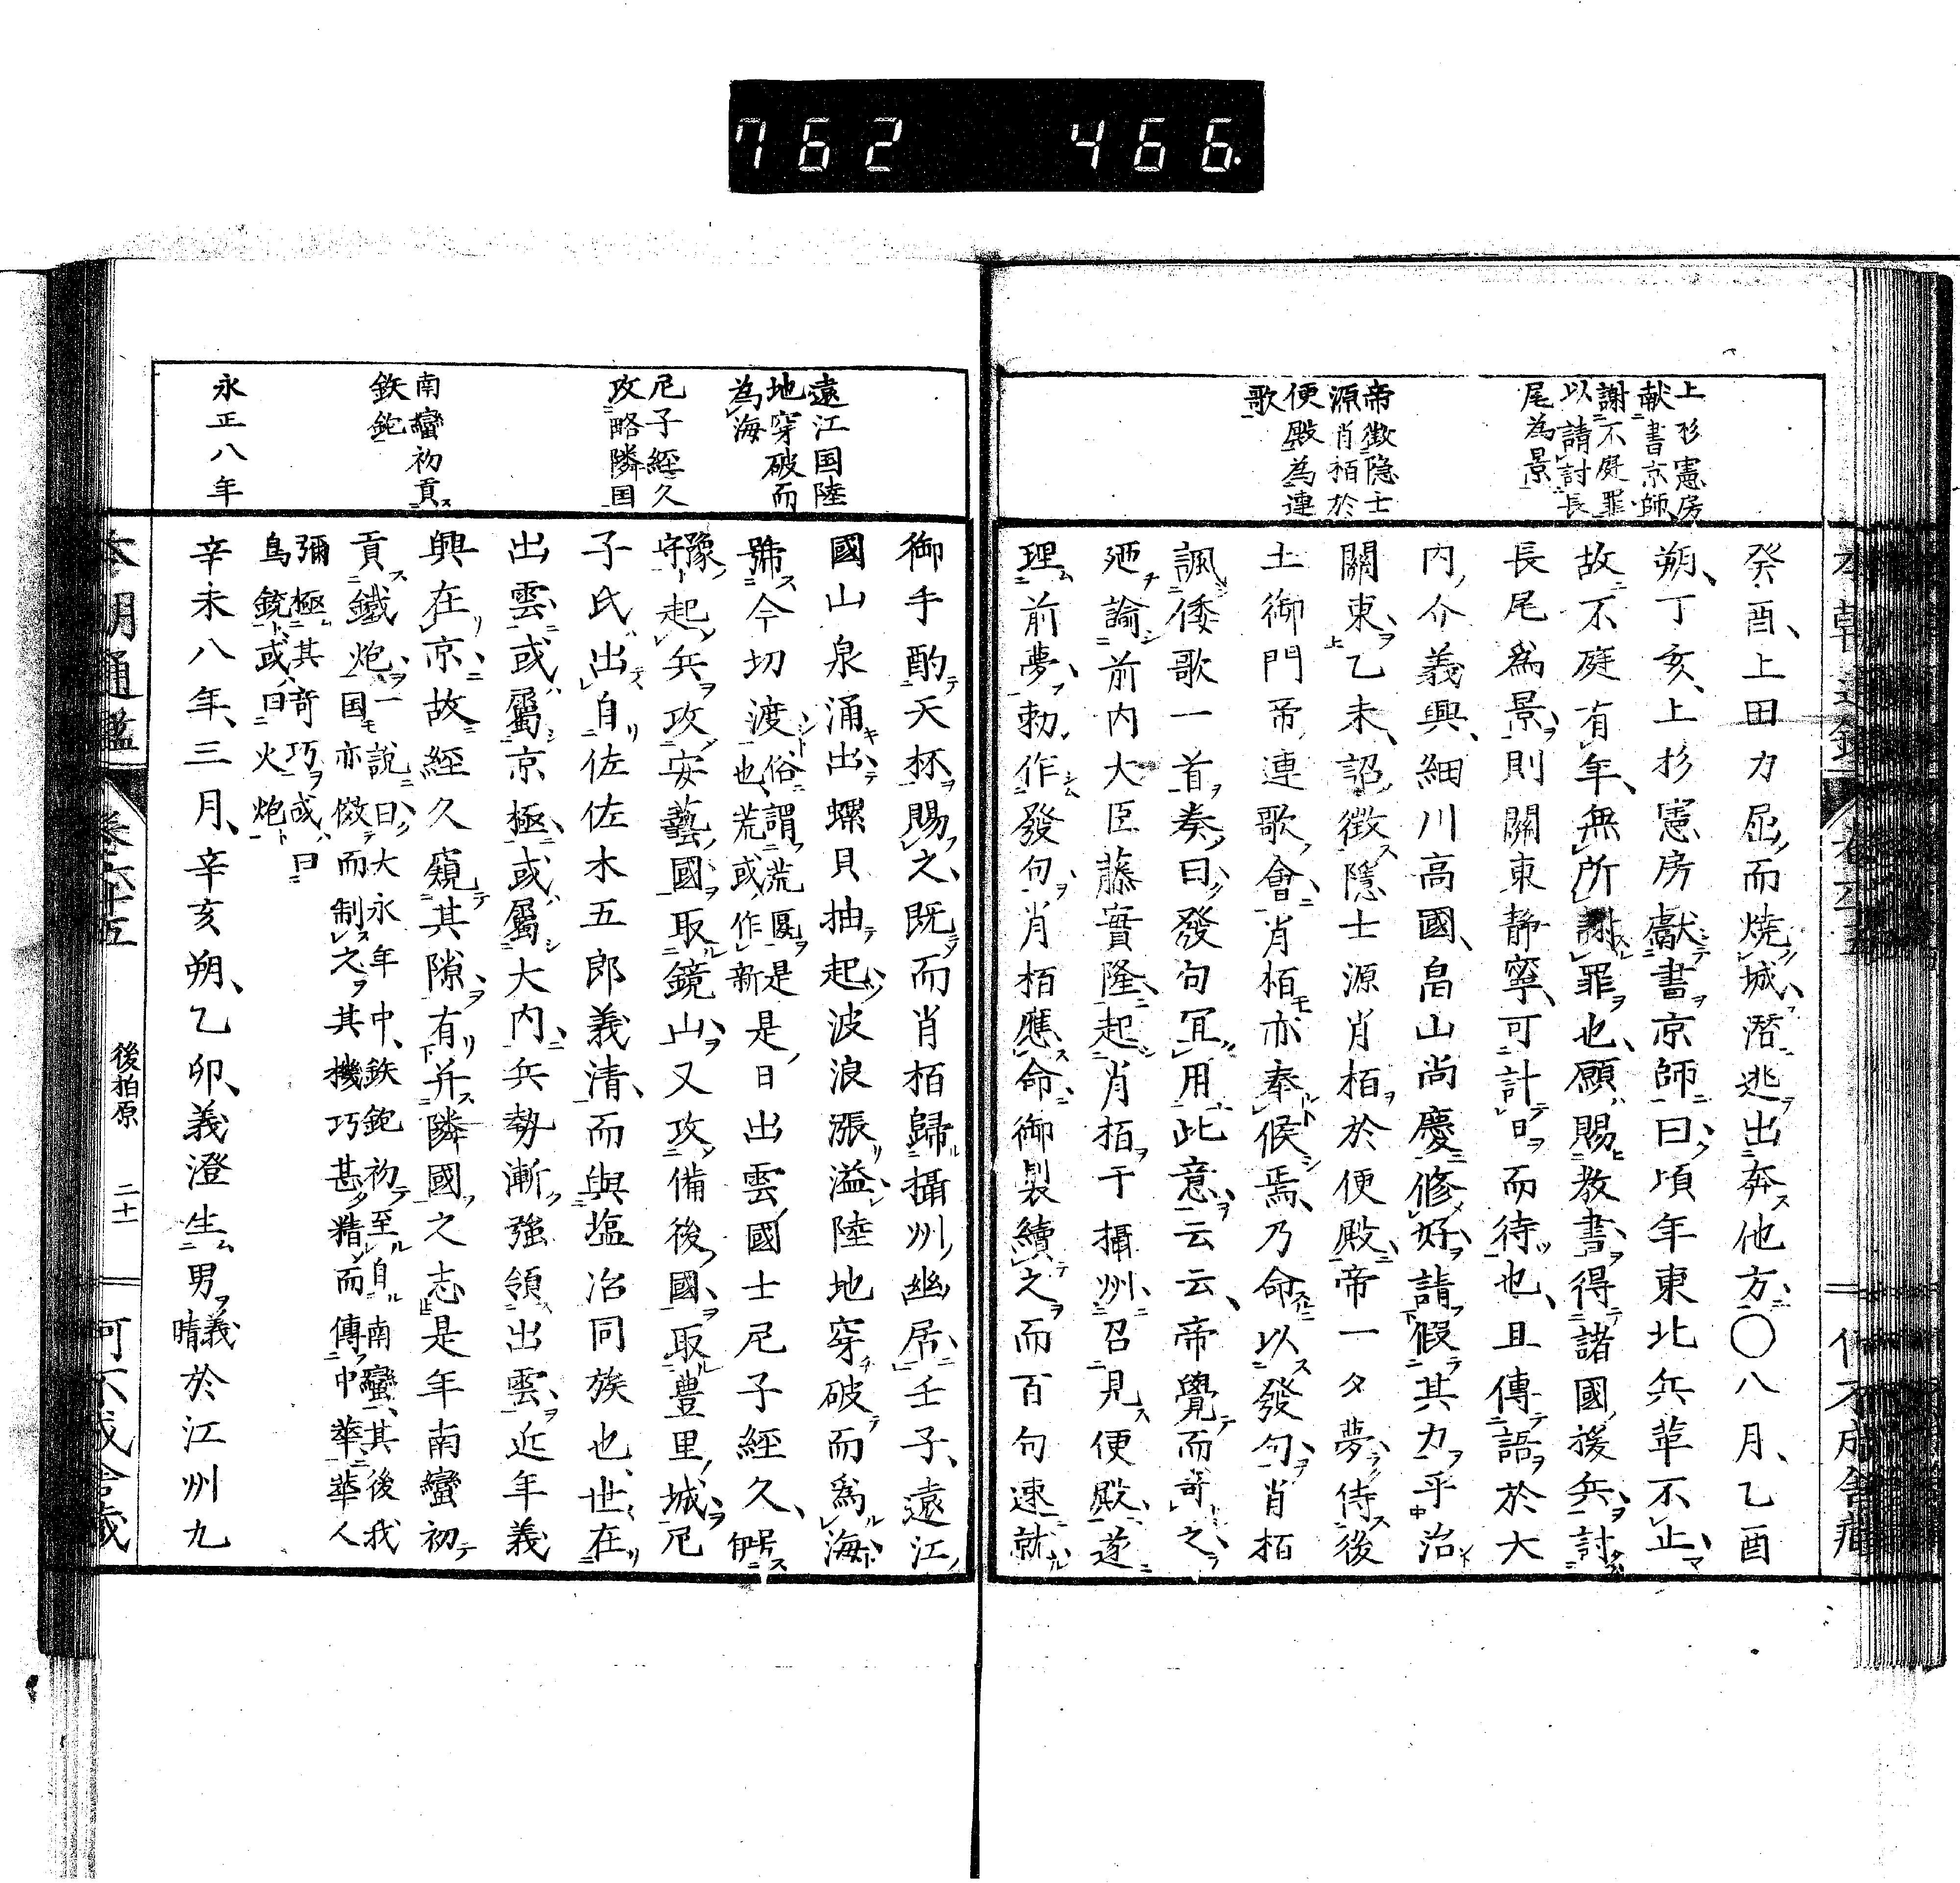 762 466.
上杉憲房
献書京師
謝不庭罪
以請討長
尾為景
帝徴隐士
源肖栢於
便殿為連
歌
癸酉、上田力屈而焼城潛逃出奔他方〇八月、乙酉
朔、丁亥、上杉憲房獻書京師曰、頃年東北兵革不止、
故不庭有年、無所謝罪也、願賜教書得諸國援兵討
長尾為景則關東靜寧、可計日而待也、且傳語於大
内介義興、細川高國、畠山尚慶修好請假其力乎治
關東、乙未、詔徴隱士源肖栢於便殿、帝一夕夢侍後
土御門帝連歌會、肖栢亦奉候焉、乃命以發句、肖栢
諷倭歌一首奏曰、發句冝用此意云云、帝覺而竒之、
廼諭前内大臣藤實隆起肖栢于攝州、召見便殿、遂
理前夢、勅作發句、肖栢應命、御製續之而百句速就
遠江国陸
地穿破而
為海
尼子經久
攻略隣国
南蠻初貢
鉄鉋
永正八年
御手酌天杯賜之、既而肖栢歸攝州幽居、壬子、遠江
國山泉涌出、螺貝抽起、波浪漲溢、陸地穿破而爲海
號今切渡俗謂荒厦是也、荒或作新是日出雲國士尼子經久、号伊
豫守起兵攻安藝國、取鏡山、又攻備後國、取豊里城、尼
子氏出自佐佐木五郎義清、而與塩冶同族也、世在
出雲、或屬京極、或屬大内、兵勢漸強領出雲、近年義
興在京、故經久窺其隙、有并隣國之志、是年南蠻初
貢鐵炮、一說曰、大永年中、鉄鉋初至自南蠻、其後我国亦傚而制之、其機巧甚精、而傳中華、華人
彌極其奇巧、或曰鳥銃、或曰火炮
辛未八年、三月、辛亥朔、乙卯、義澄生男義晴於江州九
本朝通鑑 卷六十五 後柏原 二十一